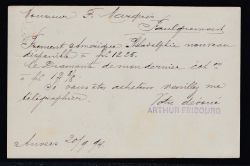 Monsieur F. Marquis
Froment Amérique Philadelphie nouveau
disponible à fr 12.25.
le diamant de mon dernier
à fr 12 7/8
Si vous êtes acheteur veuillez me
télégraphier.
Votre dévoué
ARTHUR FRIBOURG
Anvers 20/9 94